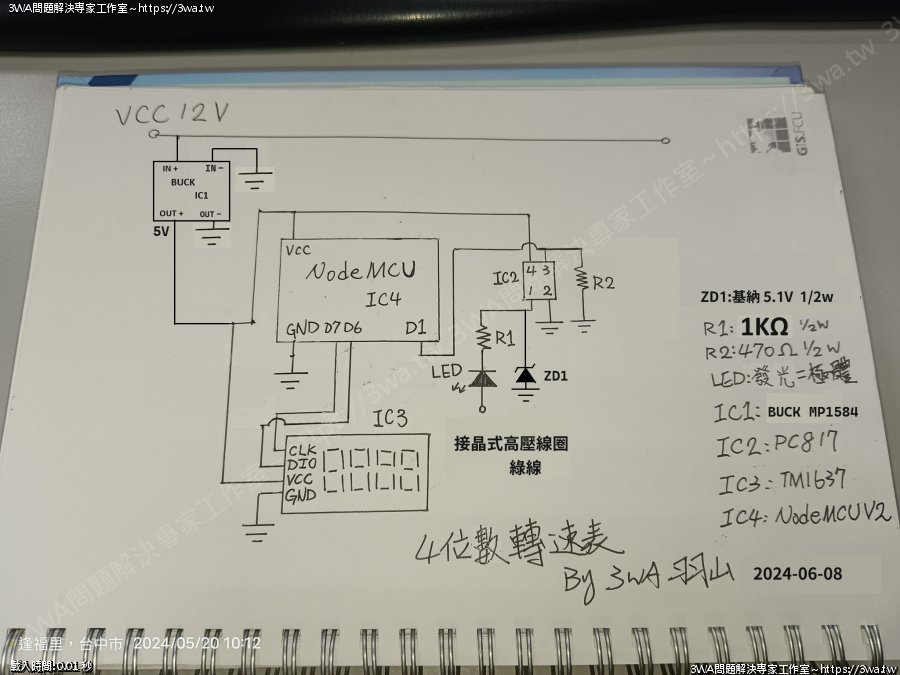 3WA問題解決專家工作室~https://3wa.tw
VCC 12V
GIS.FCU
IN+ IN-
BUCK
IC1
OUT+ OUT-
5V
VCC
NodeMCU
IC4
GND D7 D6 D1
IC2
4 3
1 2
R2
R1
LED
ZD1
ZD1:基納 5.1V 1/2w
R1: 1KΩ 1/2W
R2:470Ω 1/2W
LED:發光二極體
IC1: BUCK MP1584
IC2:PC817
IC3:TM1637
IC4:NodeMCUV2
IC3
CLK
DIO
VCC
GND
接晶式高壓線圈
綠線
4位數轉速表
By 3WA 羽山 2024-06-08
3WA問題解決專家工作室~https://3wa.tw
逢福里，台中市 2024/05/20 10:12
載入時間: 0.01 秒
3WA問題解決專家工作室~https://3wa.tw